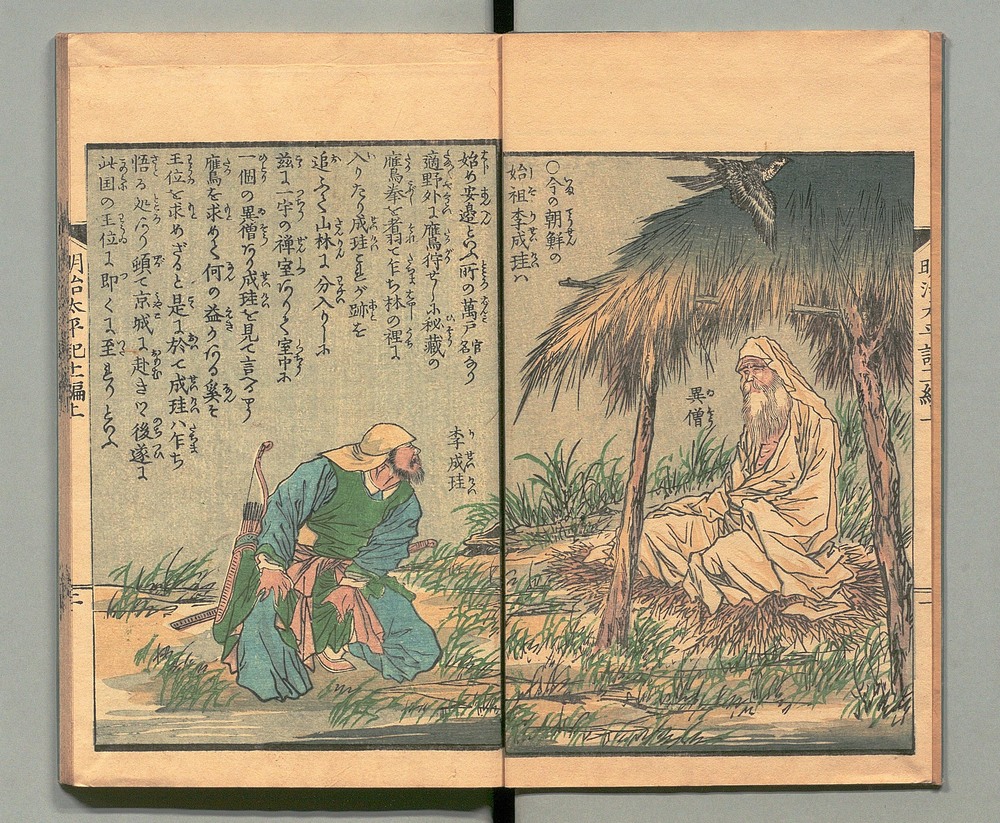 〇今の朝鮮の
始祖李成珪ハ
異僧
始め安邊といふ所の萬戸官名なり
適野外に鷹狩せしに秘蔵の
鷹拳を着羽て乍ち林の裡に
入りたり成珪ときが跡を
追ふて山林に分入りしに
茲に一宇の禅室ありて室中に
一個の異僧あり成珪を見て言へるやう
鷹鳥を求めて何の益かある奚ぞ
王位を求めざると是に於て成珪ハ乍ち
悟る処あり頭て京城に赴きつ後遂に
此国の王位に即くに至るとぞ
李成珪
明治太平記十編上